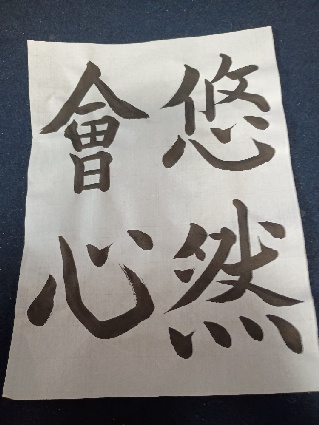 悠然
會心